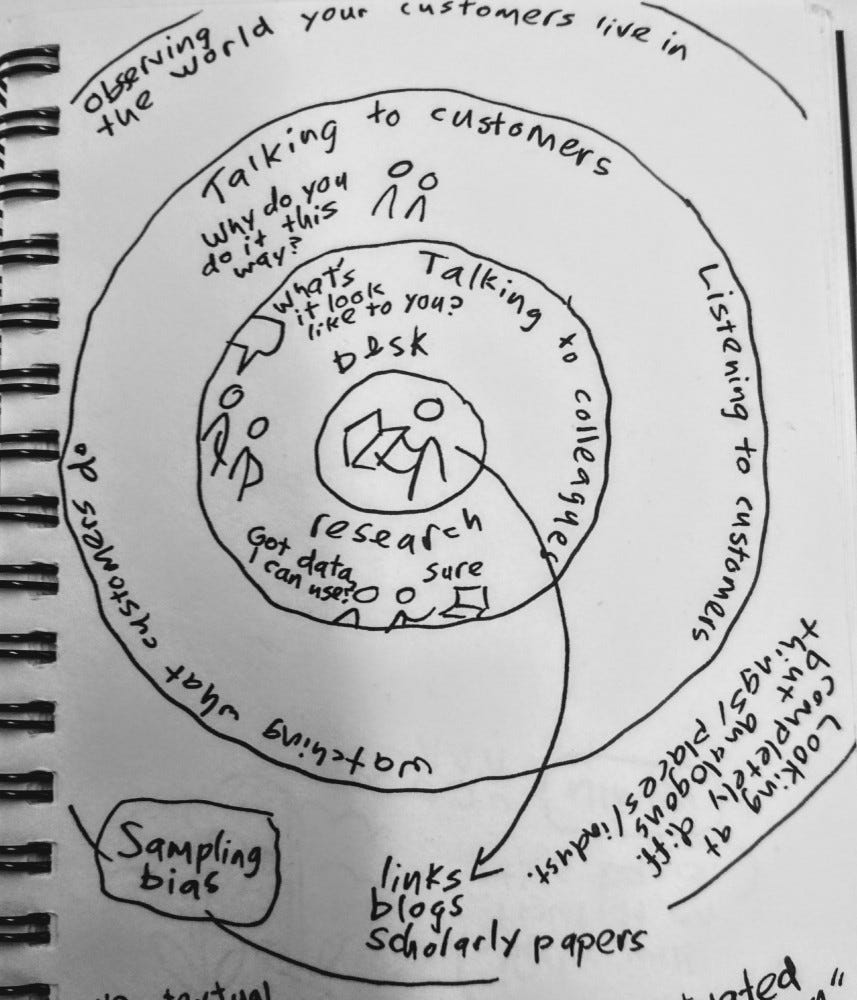 Observing
the world your customers live in
Talking to customers
Why do you
do it this
way?
Listening to customers
watching what customers do
Talking to colleagues
What's
it look
like to you?
Desk
research
Got data
I can use?
sure
Looking at
completely diff.
but analogous
things/places/indust.
Sampling
bias
links
blogs
scholarly papers
textual